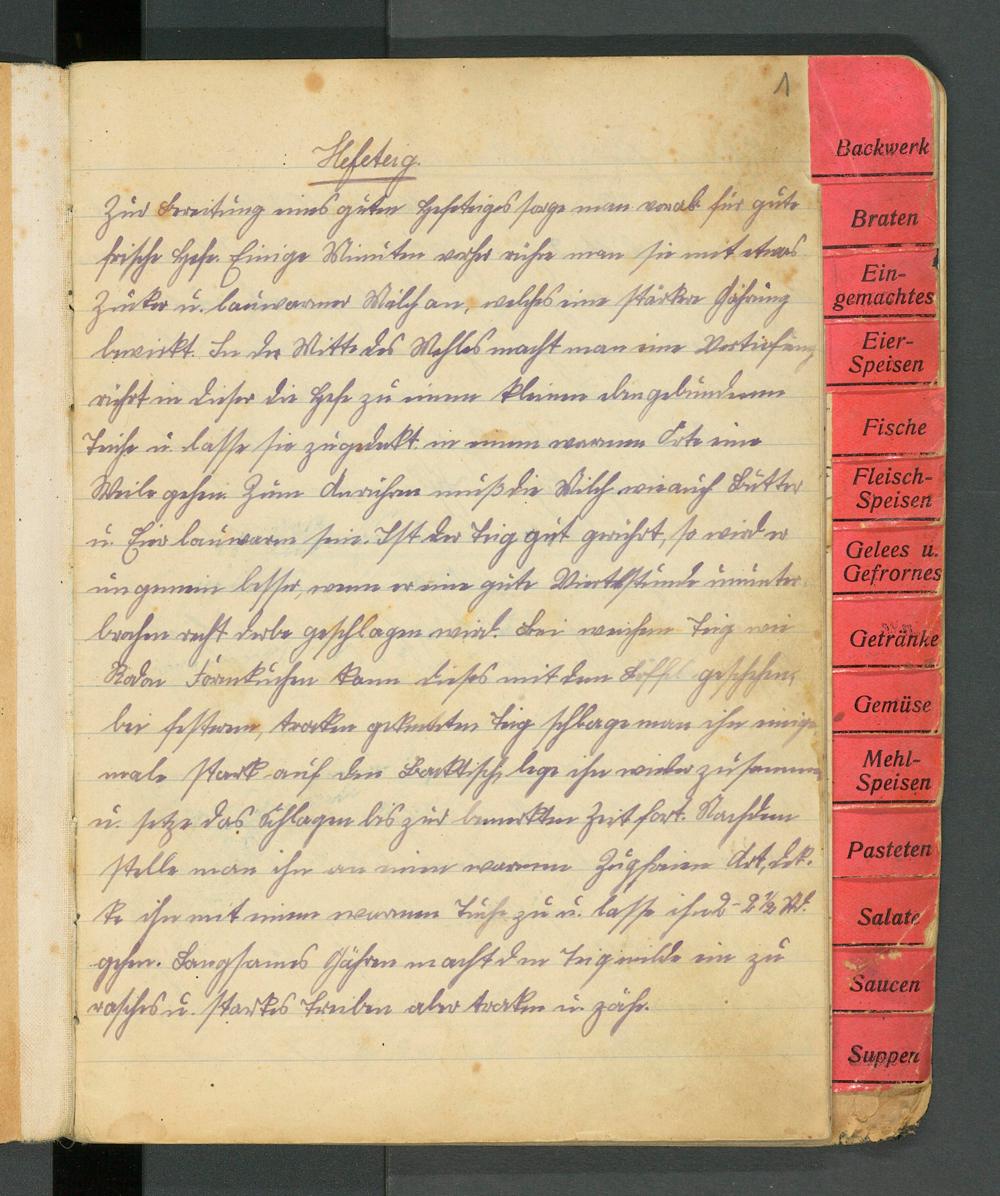 1
Hefeteig.
Zur Bereitung eines guten Hefeteiges sorge man vorab für gute
frische Hefe. Einige Minuten vorher rühre man sie mit etwas
Zucker u. lauwarmer Milch an, welches eine stärkere Gährung
bewirkt. In der Mitte des Mehles macht man eine Vertiefung
rührt in dieser die Hefe zu einem kleinen ebengebundenen
Teige u. lasse sie zugedeckt in einem warmen Orte eine
Weile gehen. Zum Anrühren muß die Milch wie auch Butter
u. Eier lauwarm sein. Ist der Teig gut gerührt, so wird er
ungemein besser, wenn er eine gute Viertelstunde ununter-
brochen recht derbe geschlagen wird. Bei weichem Teig wie
Rodon Formkuchen kann dieses mit dem Löffel geschehen,
bei festerem, trocken gekneteten Teig schlage man ihn einige
male stark auf den Backtisch, lege ihn wieder zusammen
u. setze das Schlagen bis zur bemerkten Zeit fort. Nachdem
stelle man ihn an einen warmen Zugfreien Ort, dek-
ke ihn mit einem warmen Tuche zu u. lasse ihn 2-2½ St.
gehen. Langsames Gähren macht den Teig milde ein zu
rasches u. starkes Treiben aber trocken u. zähe.
Backwerk
Braten
Ein-
gemachtes
Eier-
Speisen
Fische
Fleisch-
Speisen
Gelees u.
Gefrornes
Getränke
Gemüse
Mehl-
Speisen
Pasteten
Salate
Saucen
Suppen